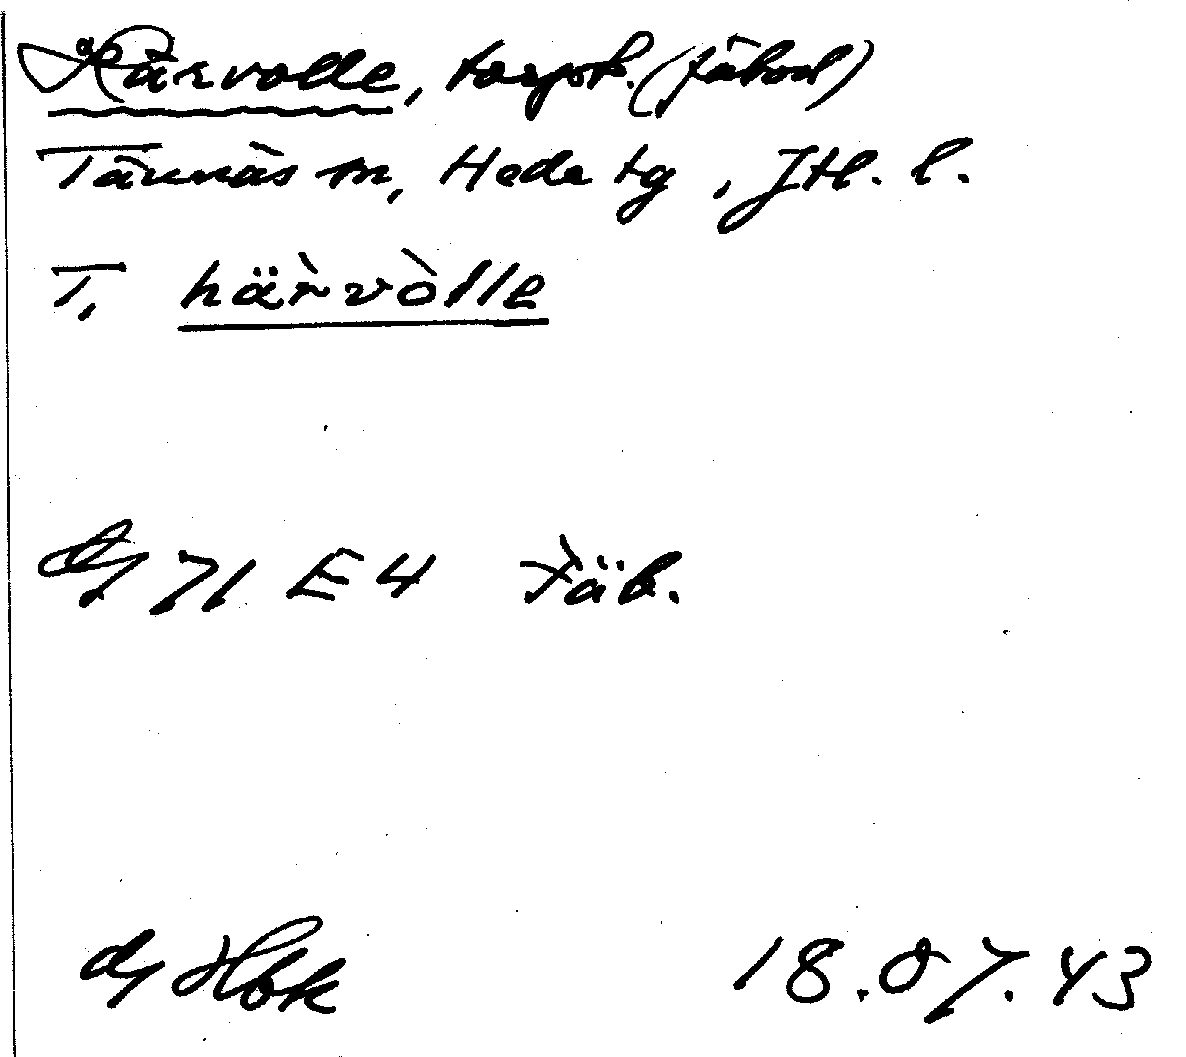 Härvolle, torpst. (fäbod)
Tännäs sn, Hede tg, Jtl. l.
T, härvòlle
71 E4 Fäb.
18.07.43